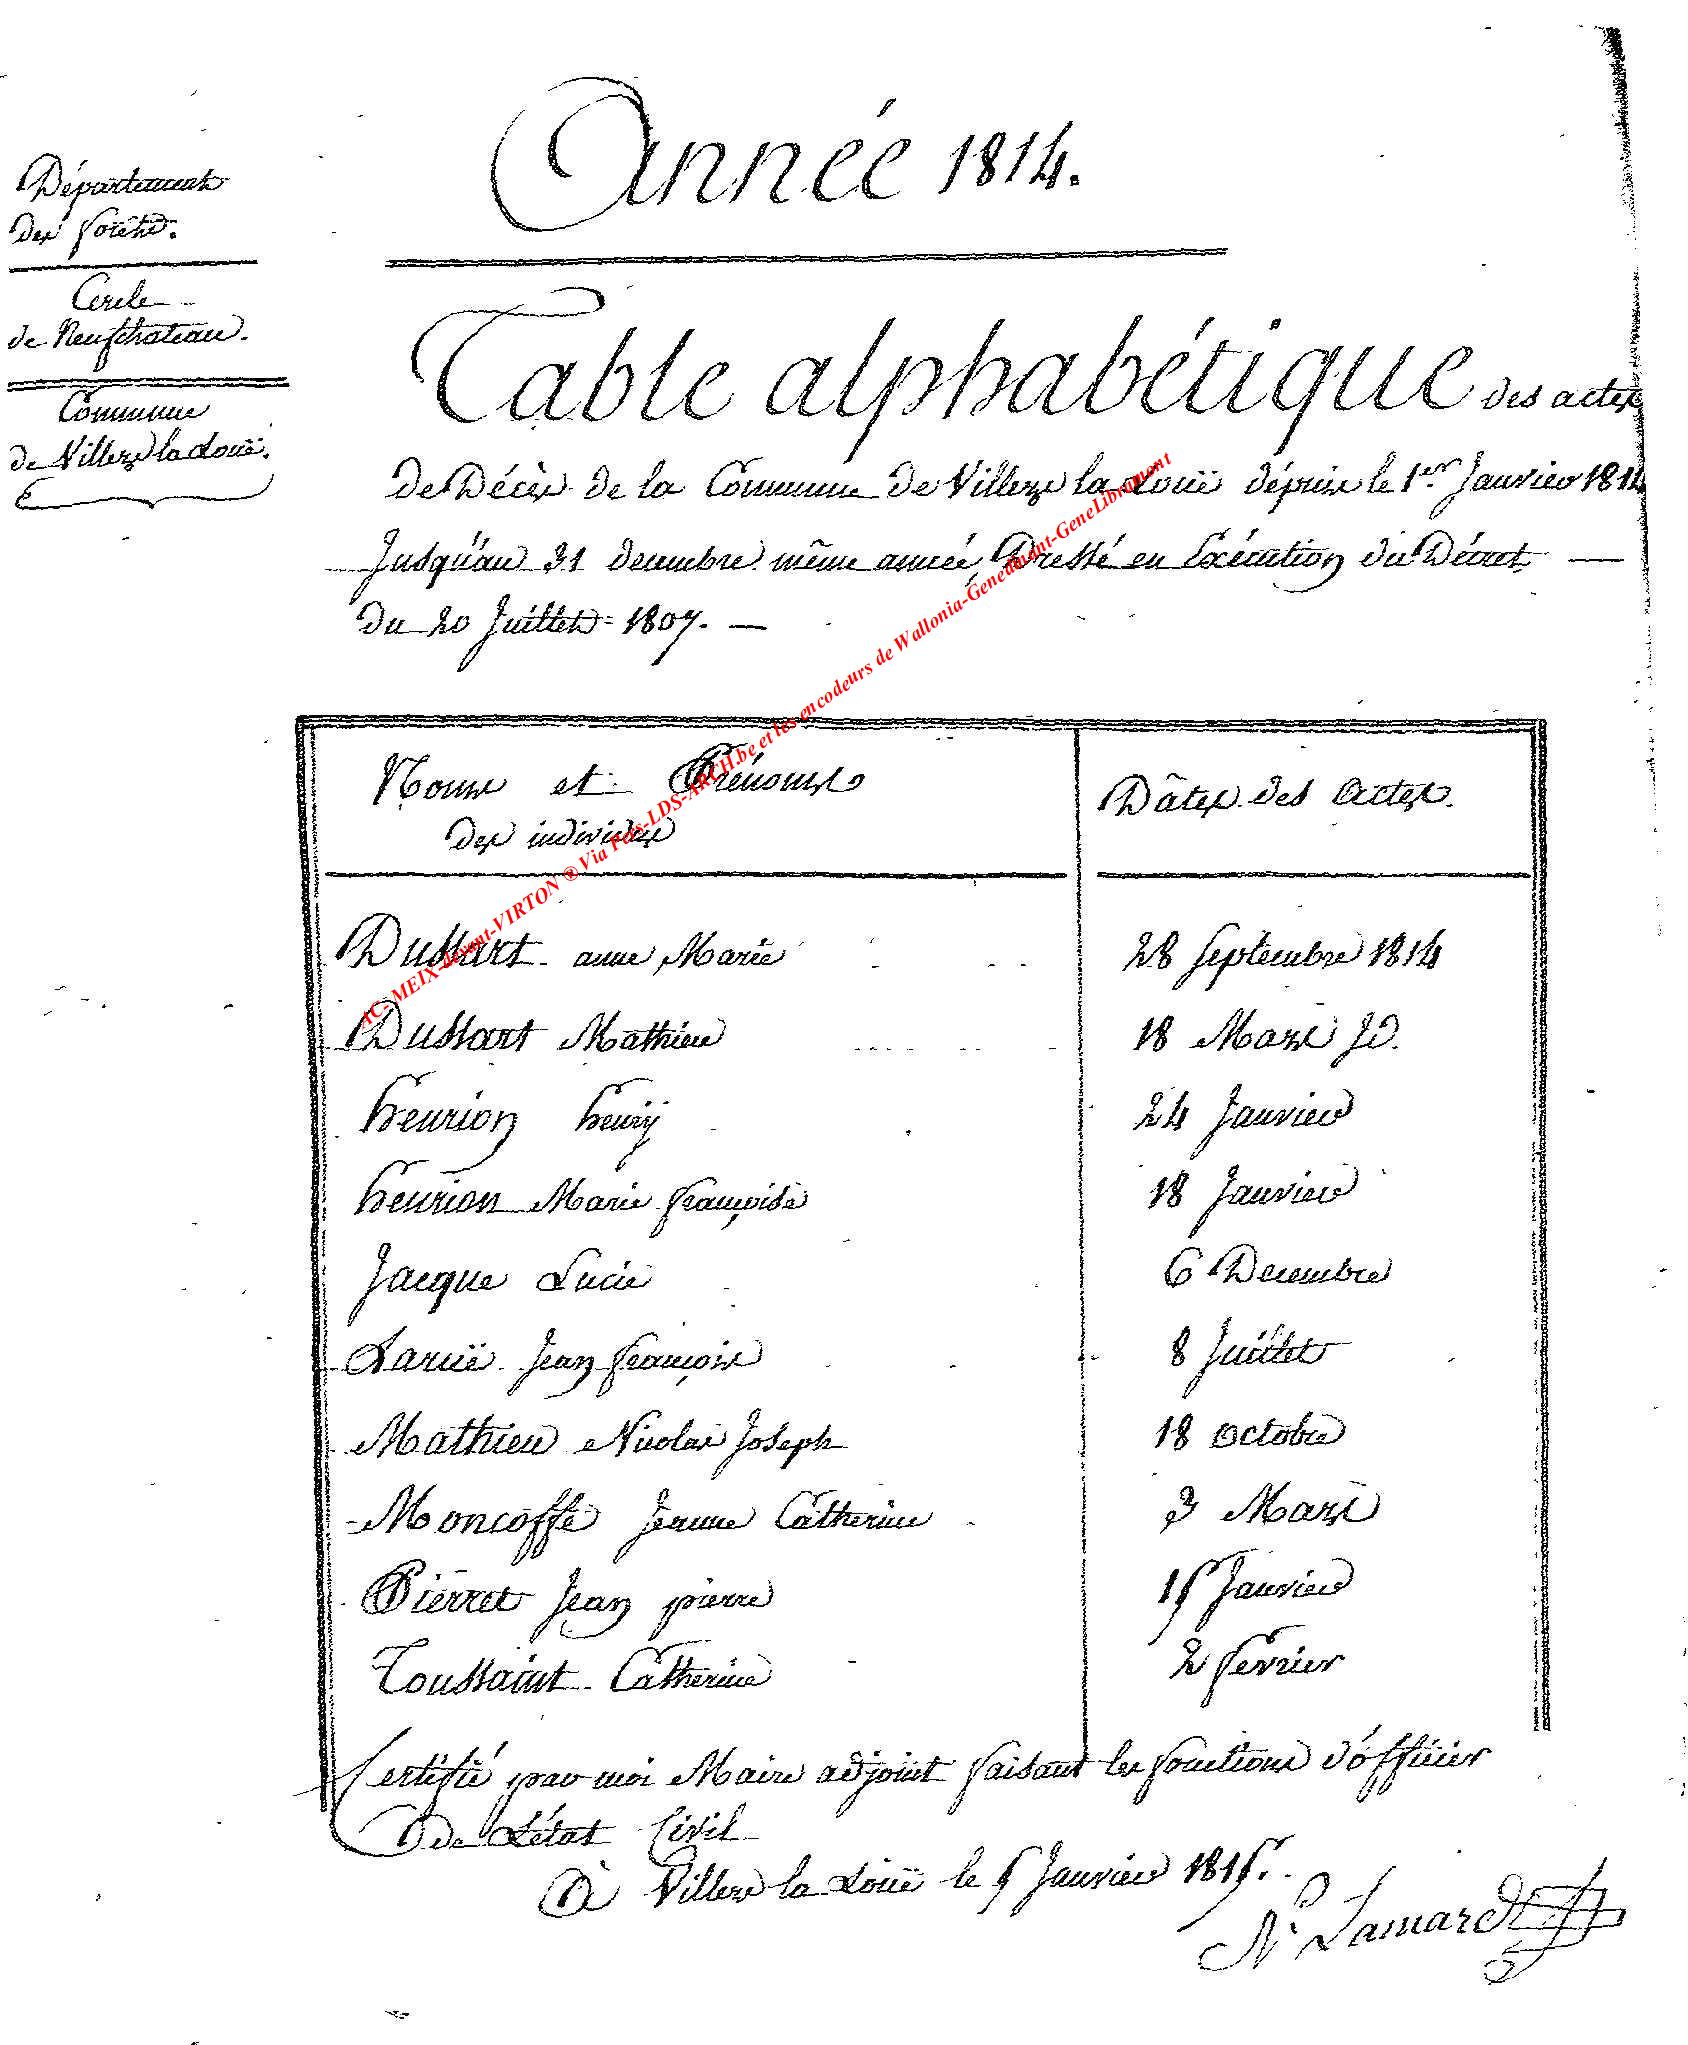 Année 1814.
Département
des forêts.
Cercle
de Neufchateau.
Commune
de Villers la Loüe.
Table alphabétique des actes
de Décès de la Commune de Villers la Loüe dépuis le 1er Janvier 1814
Jusqu'au 31 decembre même année, Dressé en Exécution du Décret
du 20 Juillet 1807.
Noms et Prénoms
des individus
Dâtes des Actes.
Dussart anne Marie 28 Septembre 1814
Dussart Mathieu 18 Mars Jd.
henrion henrÿ 24 Janvier
henrion Marie françoise 18 Janvier
Jacque Lucie 6 Decembre
Laruë Jean françois 8 Juillet
Mathieu Nicolas Joseph 18 octobre
Moncoffe Jeanne Catherine 3 Mars
Pierret Jean pierre 15 Janvier
Toussaint Catherine 2 fevrier
Certifié par moi Maire adjoint faisant les fonctions d'officier
de L'état Civil
A Villers la Loüe le 5 Janvier 1815.
N. Lamard
AC-MEIX-devant-VIRTON ® Via Pdx-LDS-ARCH.be et les encodeurs de Wallonia-Genedinant-GeneLibramont